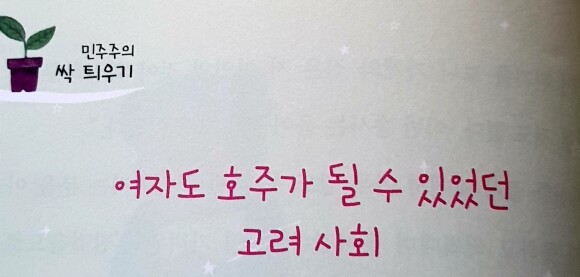 민주주의
싹 틔우기
여자도 호주가 될 수 있었던
고려 사회